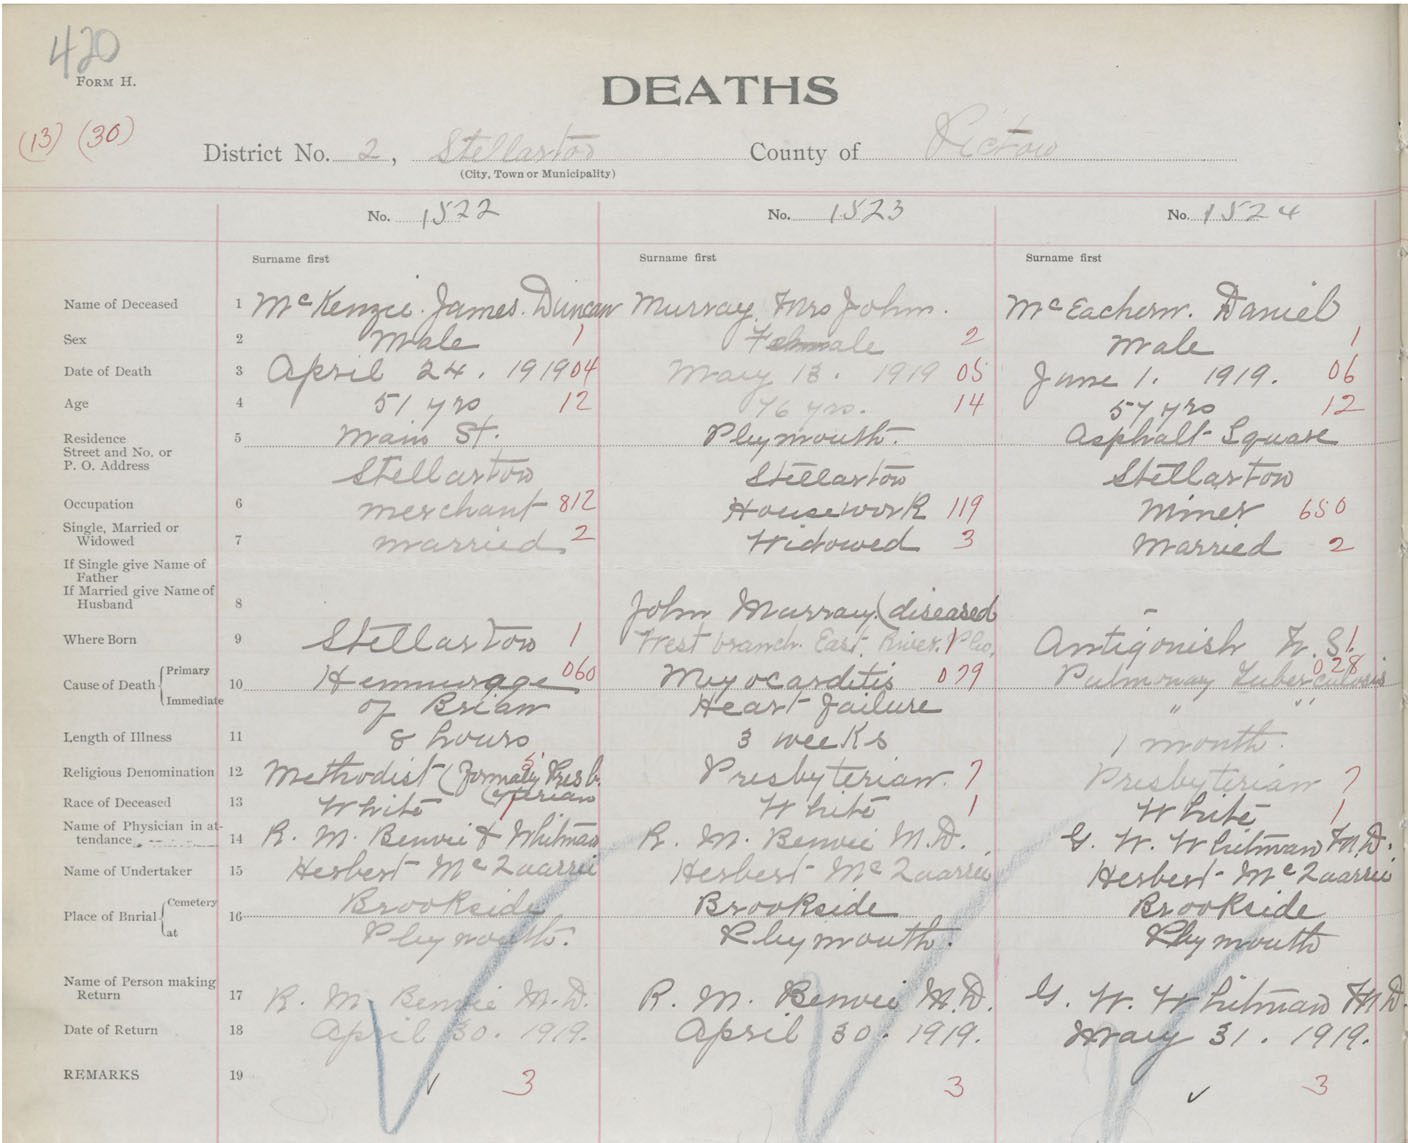 420
FORM H.
DEATHS
(13) (30)
District No. 2, Stellarton County of Pictou
(City, Town or Municipality)
No. 1522 No. 1523 No. 1524
Surname first Surname first Surname first
Name of Deceased 1 McKenzie. James. Duncan Murray, Mrs John. McEachern. Daniel
Sex 2 Male 1 Female 2 Male 1
Date of Death 3 April 24. 1919 04 May 13. 1919 05 June 1. 1919. 06
Age 4 51 yrs 12 76 yrs. 14 57 yrs 12
Residence 5 Main St. Plymouth. Asphalt Square
Street and No. or
P. O. Address Stellarton Stellarton Stellarton
Occupation 6 merchant 812 Housework 119 Miner 650
Single, Married or
Widowed 7 married 2 Widowed 3 Married 2
If Single give Name of
Father
If Married give Name of
Husband 8 John Murray (diseased -
Where Born 9 Stellarton 1 West branch. East. River. Pic. 1 Antigonish N.S. 1
Cause of Death { Primary 10 Hemmorage 060 Myocarditis 079 Pulmonay Tuberculosis 028
Immediate of Brian Heart Failure " "
Length of Illness 11 8 hours 3 weeks 1 month.
Religious Denomination 12 Methodist (formaly Presb. 5 Presbyterian. 7 Presbyterian 7
yterian
Race of Deceased 13 White 1 White 1 White 1
Name of Physician in at-
tendance 14 R. M. Benvie & Whitman R. M. Benvie M.D. G. W. Whitman M.D.
Name of Undertaker 15 Herbert McQuarrie Herbert McQuarrie Herbert McQuarrie
Place of Burial { Cemetery 16 Brookside Brookside Brookside
at Plymouth. Plymouth. Plymouth
Name of Person making
Return 17 R. M. Benvie M.D. R. M. Benvie M.D. G. W. Whitman M.D.
Date of Return 18 April 30. 1919. April 30. 1919. May 31. 1919.
REMARKS 19 ✓ 3 3 ✓ 3